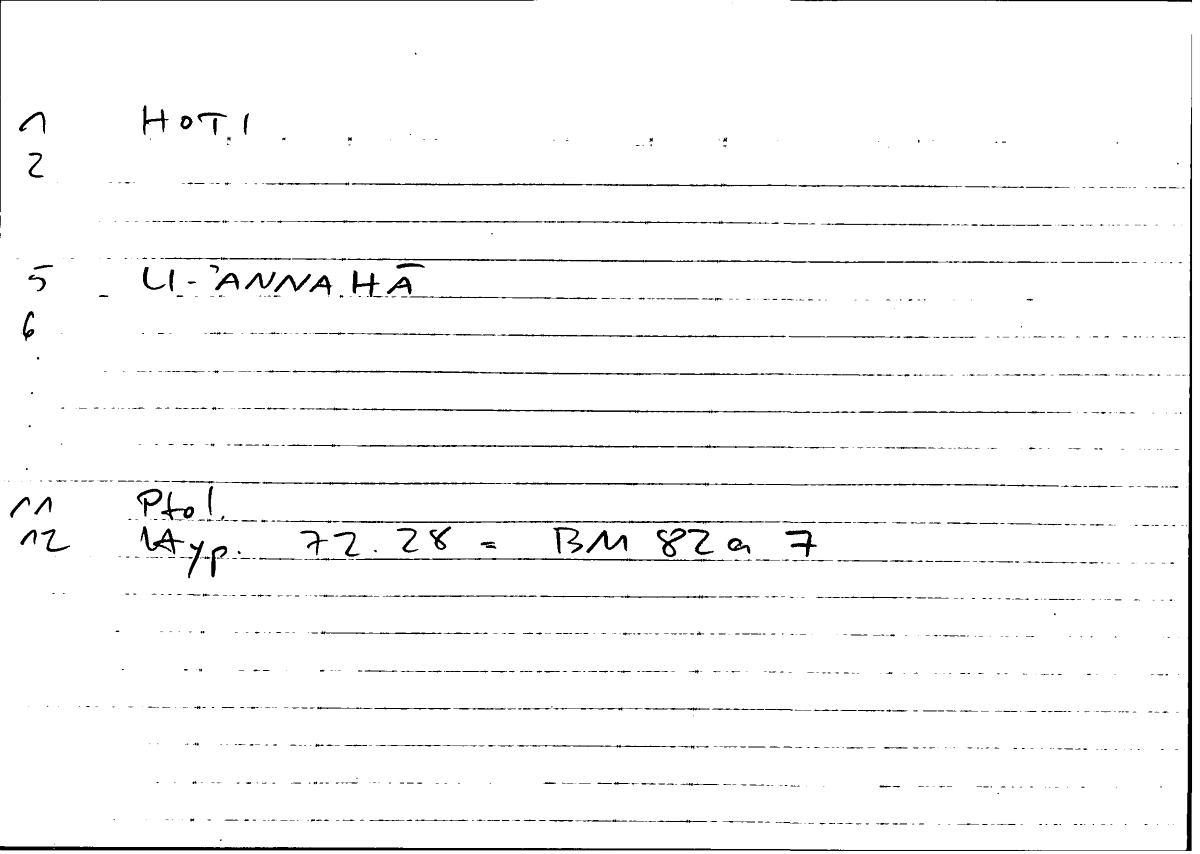 1 HOT.1
2
5 LI-ʾANNAHĀ
6
.
.
.
.
11 Ptol.
12 Hyp. 72.28 = BM 82a 7